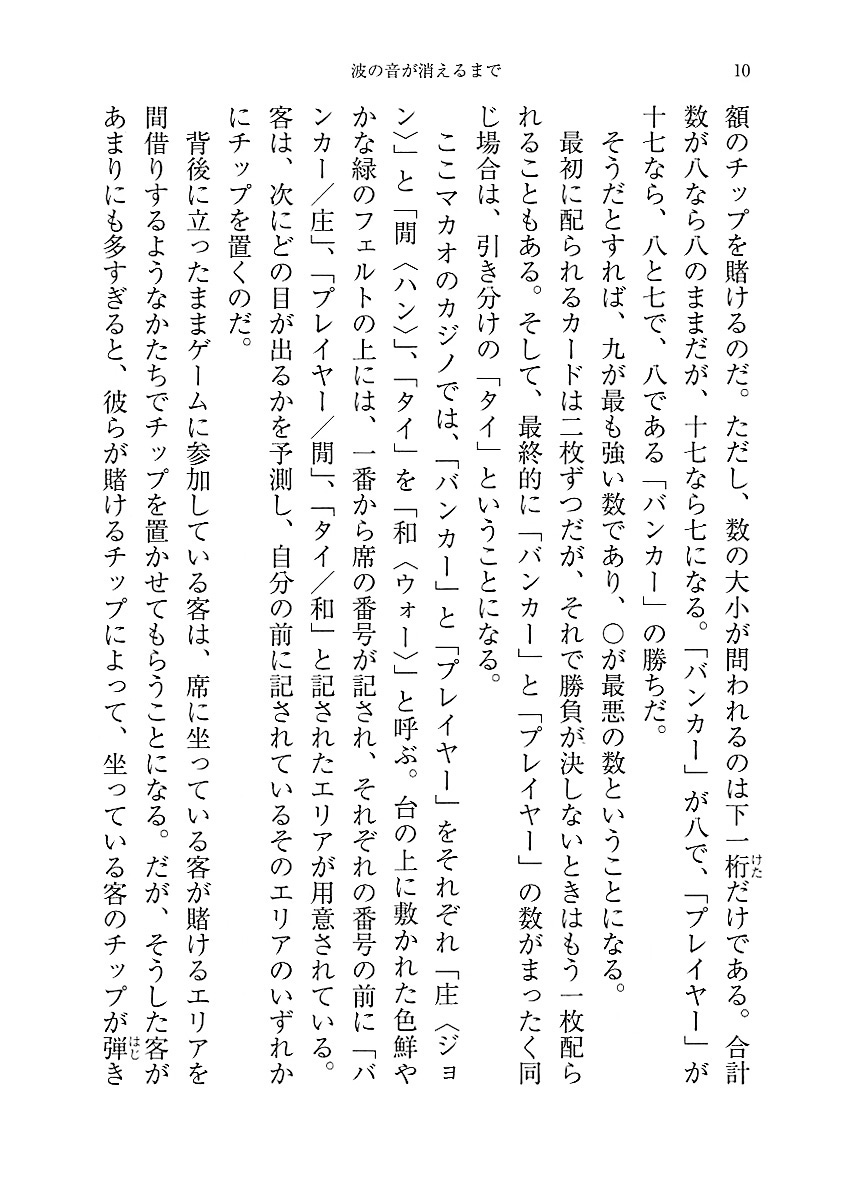 波の音が消えるまで
10
額のチップを賭けるのだ。ただし、数の大小が問われるのは下一桁だけである。合計
けた
数が八なら八のままだが、十七なら七になる。「バンカー」が八で、「プレイヤー」が
十七なら、八と七で、八である「バンカー」の勝ちだ。
そうだとすれば、九が最も強い数であり、〇が最悪の数ということになる。
最初に配られるカードは二枚ずつだが、それで勝負が決しないときはもう一枚配ら
れることもある。そして、最終的に「バンカー」と「プレイヤー」の数がまったく同
じ場合は、引き分けの「タイ」ということになる。
ここマカオのカジノでは、「バンカー」と「プレイヤー」をそれぞれ「庄〈ジョ
ン〉」と「閒〈ハン〉」、「タイ」を「和〈ウォー〉」と呼ぶ。台の上に敷かれた色鮮や
かな緑のフェルトの上には、一番から席の番号が記され、それぞれの番号の前に「バ
ンカー／庄」、「プレイヤー／閒」、「タイ／和」と記されたエリアが用意されている。
客は、次にどの目が出るかを予測し、自分の前に記されているそのエリアのいずれか
にチップを置くのだ。
背後に立ったままゲームに参加している客は、席に坐っている客が賭けるエリアを
間借りするようなかたちでチップを置かせてもらうことになる。だが、そうした客が
あまりにも多すぎると、彼らが賭けるチップによって、坐っている客のチップが弾き
はじ